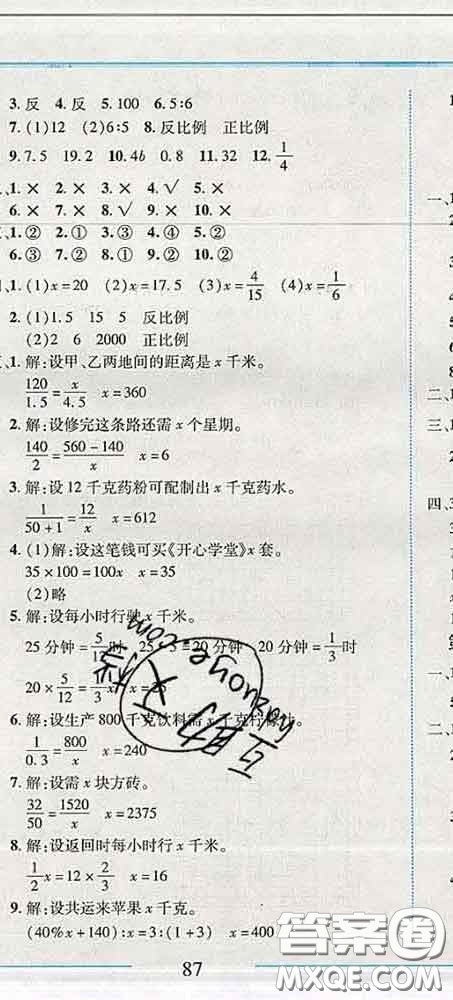 3. 反 4. 反 5. 100 6. 5:6
7. (1)12 (2)6:5 8. 反比例 正比例
9. 7.5 19.2 10. 4b 0.8 11. 32 12. 1/4
1. × 2. × 3. × 4. √ 5. ×
6. × 7. × 8. √ 9. × 10. ×
1. ② 2. ① 3. ③ 4. ④ 5. ②
6. ③ 7. ② 8. ① 9. ① 10. ②
1. (1)x=20 (2)x=17.5 (3)x=4/15 (4)x=1/6
2. (1)1.5 15 5 反比例
(2)2 6 2000 正比例
1. 解:设甲、乙两地间的距离是 x 千米。
120/1.5=x/4.5 x=360
2. 解:设修完这条路还需 x 个星期。
140/2=(560-140)/x x=6
3. 解:设 12 千克药粉可配制出 x 千克药水。
1/(50+1)=12/x x=612
4. (1)解:设这笔钱可买《开心学堂》x 套。
35×100=100x x=35
(2)略
5. 解:设每小时行驶 x 千米。
25 分钟=5/12时 25-5=20 分钟 20 分钟=1/3时
20×5/12=1/3x x=25
6. 解:设生产 800 千克饮料需 x 千克
1/0.3=800/x x=240
7. 解:设需 x 块方砖。
32/50=1520/x x=2375
8. 解:设返回时每小时行 x 千米。
1/2x=12×2/3 x=16
9. 解:设共运来苹果 x 千克。
(40%x+140):x=3:(1+3) x=400
87
一、1
2
3
4
5
6
7
8
二、1
三、1
四、1
答案圈
MXQE.COM